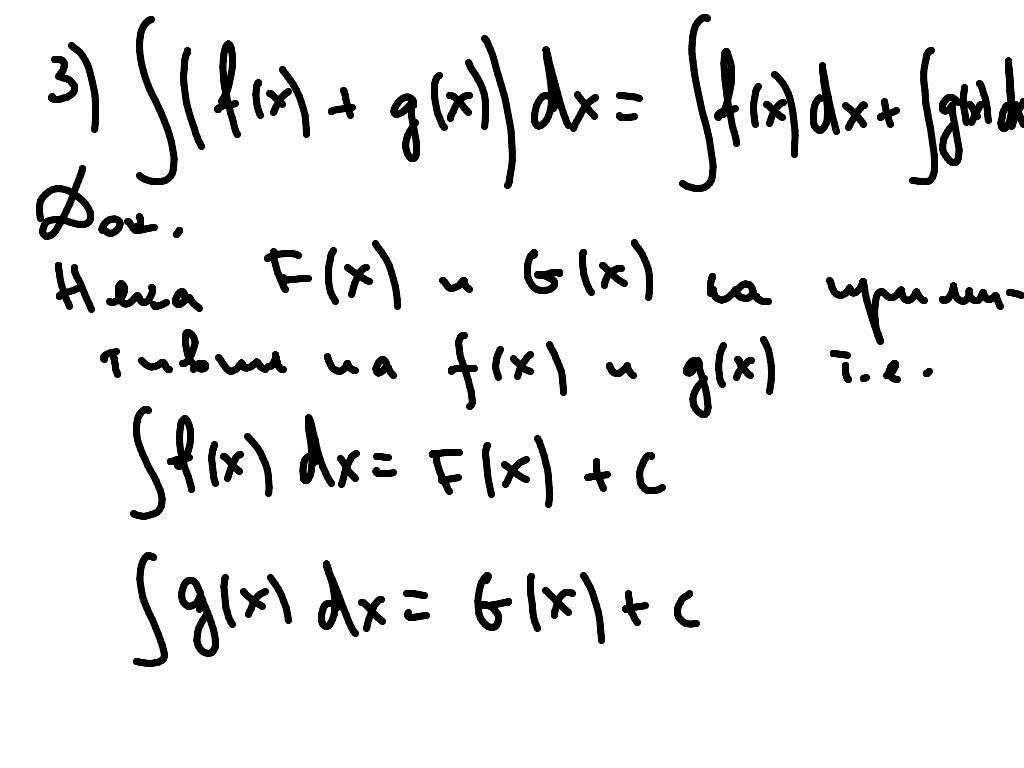 3) ∫(f(x) + g(x)) dx = ∫f(x) dx + ∫g(x) dx
Док.
Нека F(x) и G(x) са прими-
тивни на f(x) и g(x) т.е.
∫f(x) dx = F(x) + c
∫g(x) dx = G(x) + c